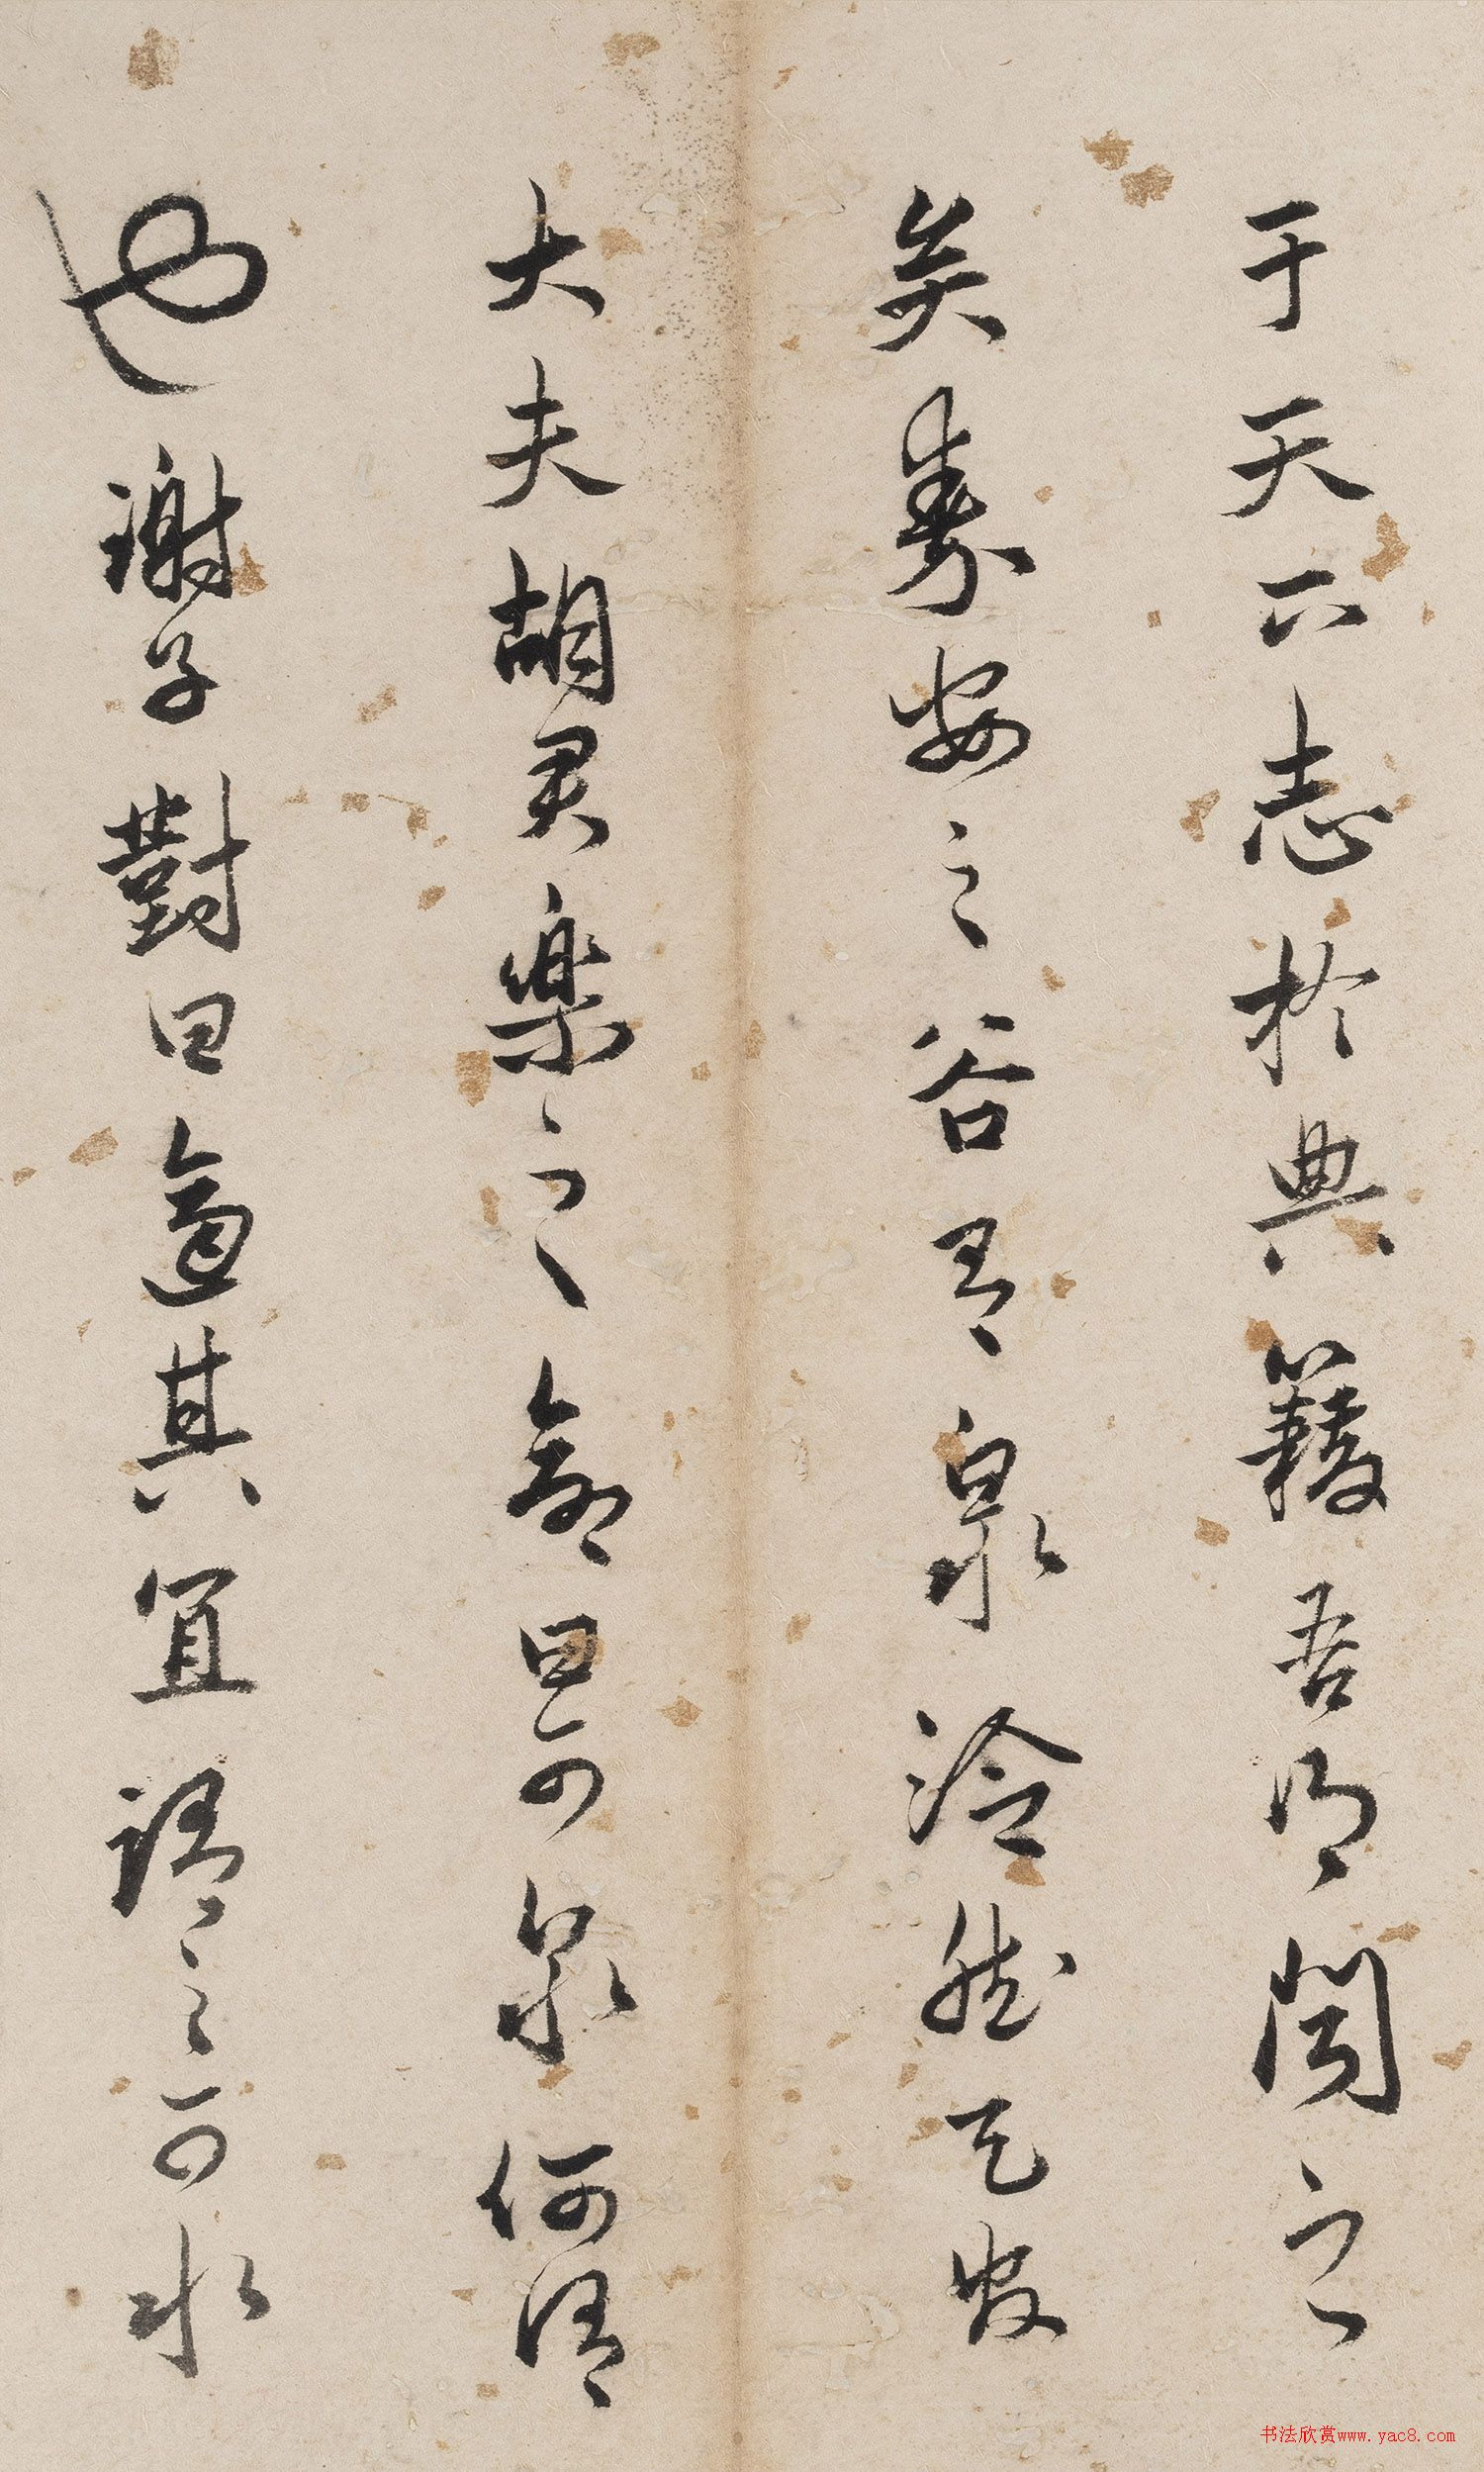 于天下志於典籍吾得聞之
矣壽安之谷有泉泠然天發
大夫胡君樂之命曰可泉何謂
也謝子對曰適其宜謂之可水
书法欣赏www.yac8.com